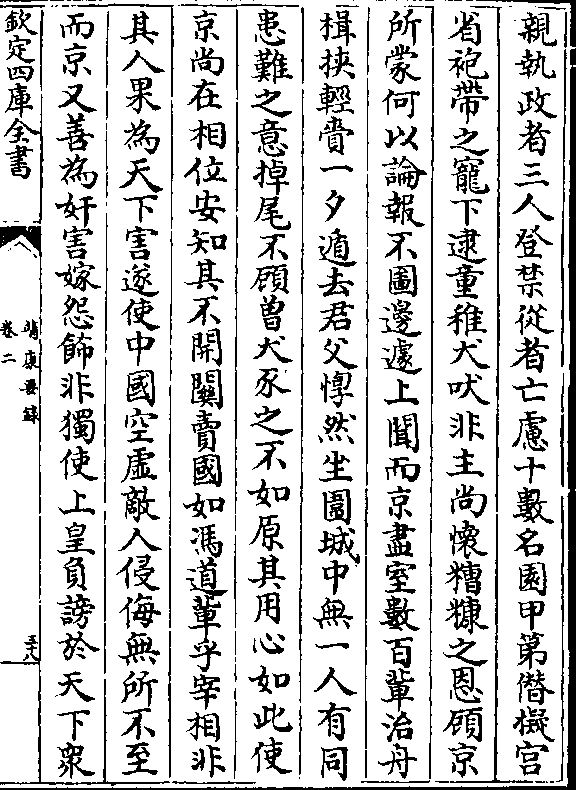 親執政者三人登禁從者亡慮十數名園甲第僭擬宮
省袍帶之寵下逮童稚犬吠非主尚懷糟糠之恩顧京
所蒙何以論報不圖邊遽上聞而京盡室數百輩治舟
楫挾輕賫一夕遁去君父惸然坐圍城中無一人有同
患難之意掉尾不顧曽犬豕之不如原其用心如此使
京尚在相位安知其不開闗賣國如馮道輩乎宰相非
其人果為天下害遂使中國空虛敵人侵侮無所不至
而京又善為奸害嫁怨飾非獨使上皇負謗於天下衆
欽定四庫全書
靖康要錄
卷二
五十八